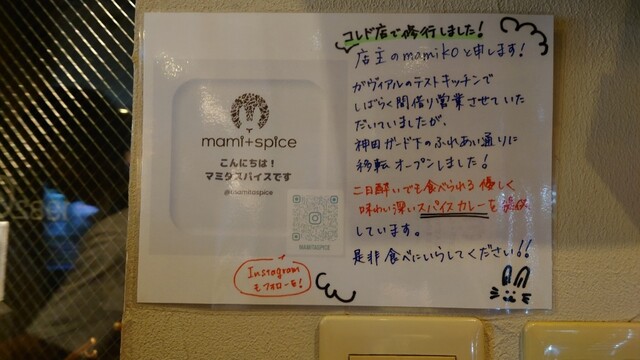 mami+spice
こんにちは！
マミタスパイスです
@mamitaspice
MAMITASPICE
Instagram
もフォローを!
コレド店で修行しました!
店主のmamikoと申します!
ガヴィアルのテストキッチンで
しばらく間借り営業させていた
だいていましたが、
神田ガード下のふれあい通りに
移転オープンしました!
二日酔いでも食べられる優しく
味わい深いスパイスカレーを
しています。
是非食べにいらしてください!!